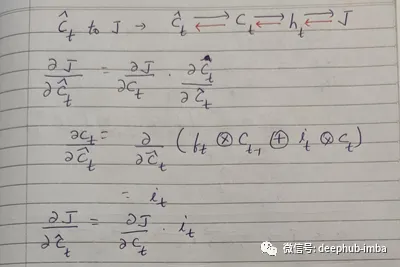 Ĉt to J → Ĉt ⇄ Ct ⇄ ht ⇄ J
∂J/∂Ĉt = ∂J/∂Ct · ∂Ct/∂Ĉt
∂Ct/∂Ĉt = ∂/∂Ĉt (ft ⊗ Ct-1 ⊕ it ⊗ Ct)
= it
∂J/∂Ĉt = ∂J/∂Ct · it
微信号: deephub-imba